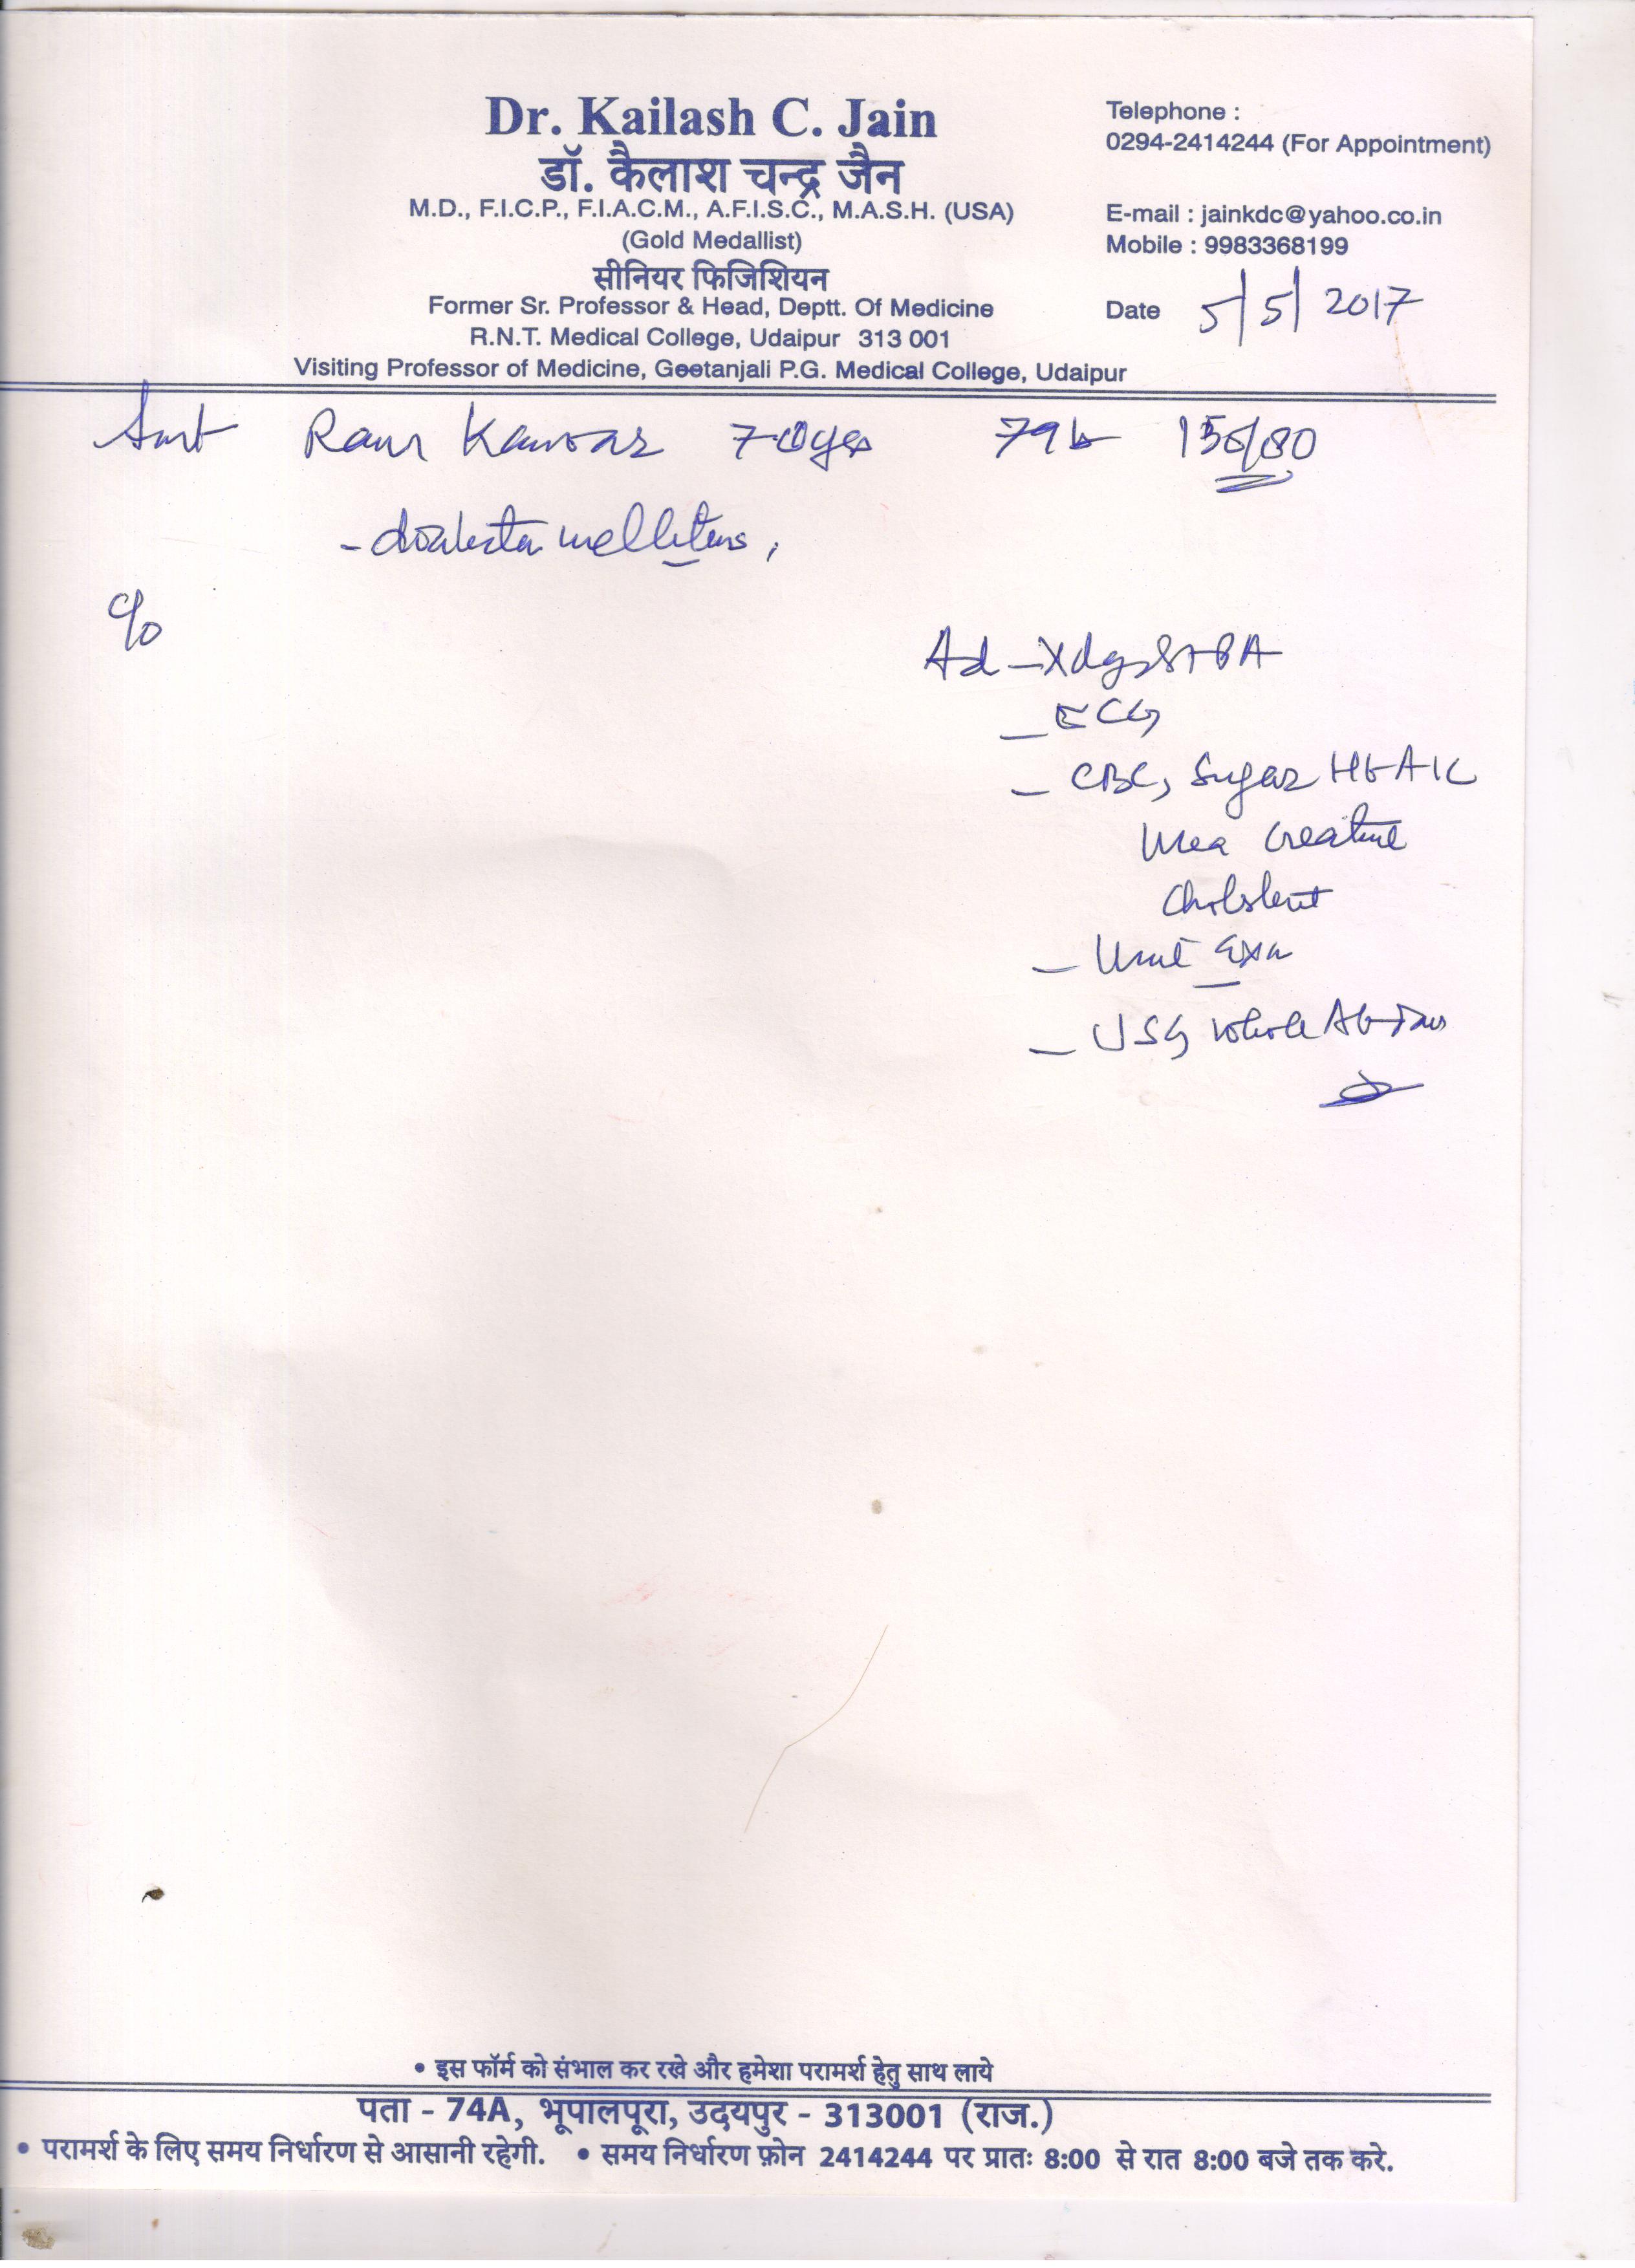 Dr. Kailash C. Jain
डॉ. कैलाश चन्द्र जैन
M.D., F.I.C.P., F.I.A.C.M., A.F.I.S.C., M.A.S.H. (USA)
(Gold Medallist)
सीनियर फिजिशियन
Former Sr. Professor & Head, Deptt. Of Medicine
R.N.T. Medical College, Udaipur 313 001
Visiting Professor of Medicine, Geetanjali P.G. Medical College, Udaipur
Telephone :
0294-2414244 (For Appointment)
E-mail : jainkdc@yahoo.co.in
Mobile : 9983368199
Date 5/5/2017
Smt Kanwar 70yrs 150/80
- diabetes mellitus,
C/o
Ad -
- ECG
- CBC, Sugar HbA1C
Urea Creatine
- Urine Exn
- USG whole
• इस फॉर्म को संभाल कर रखे और हमेशा परामर्श हेतु साथ लाये
पता - 74A, भूपालपूरा, उदयपुर - 313001 (राज.)
• परामर्श के लिए समय निर्धारण से आसानी रहेगी. • समय निर्धारण फ़ोन 2414244 पर प्रातः 8:00 से रात 8:00 बजे तक करे.